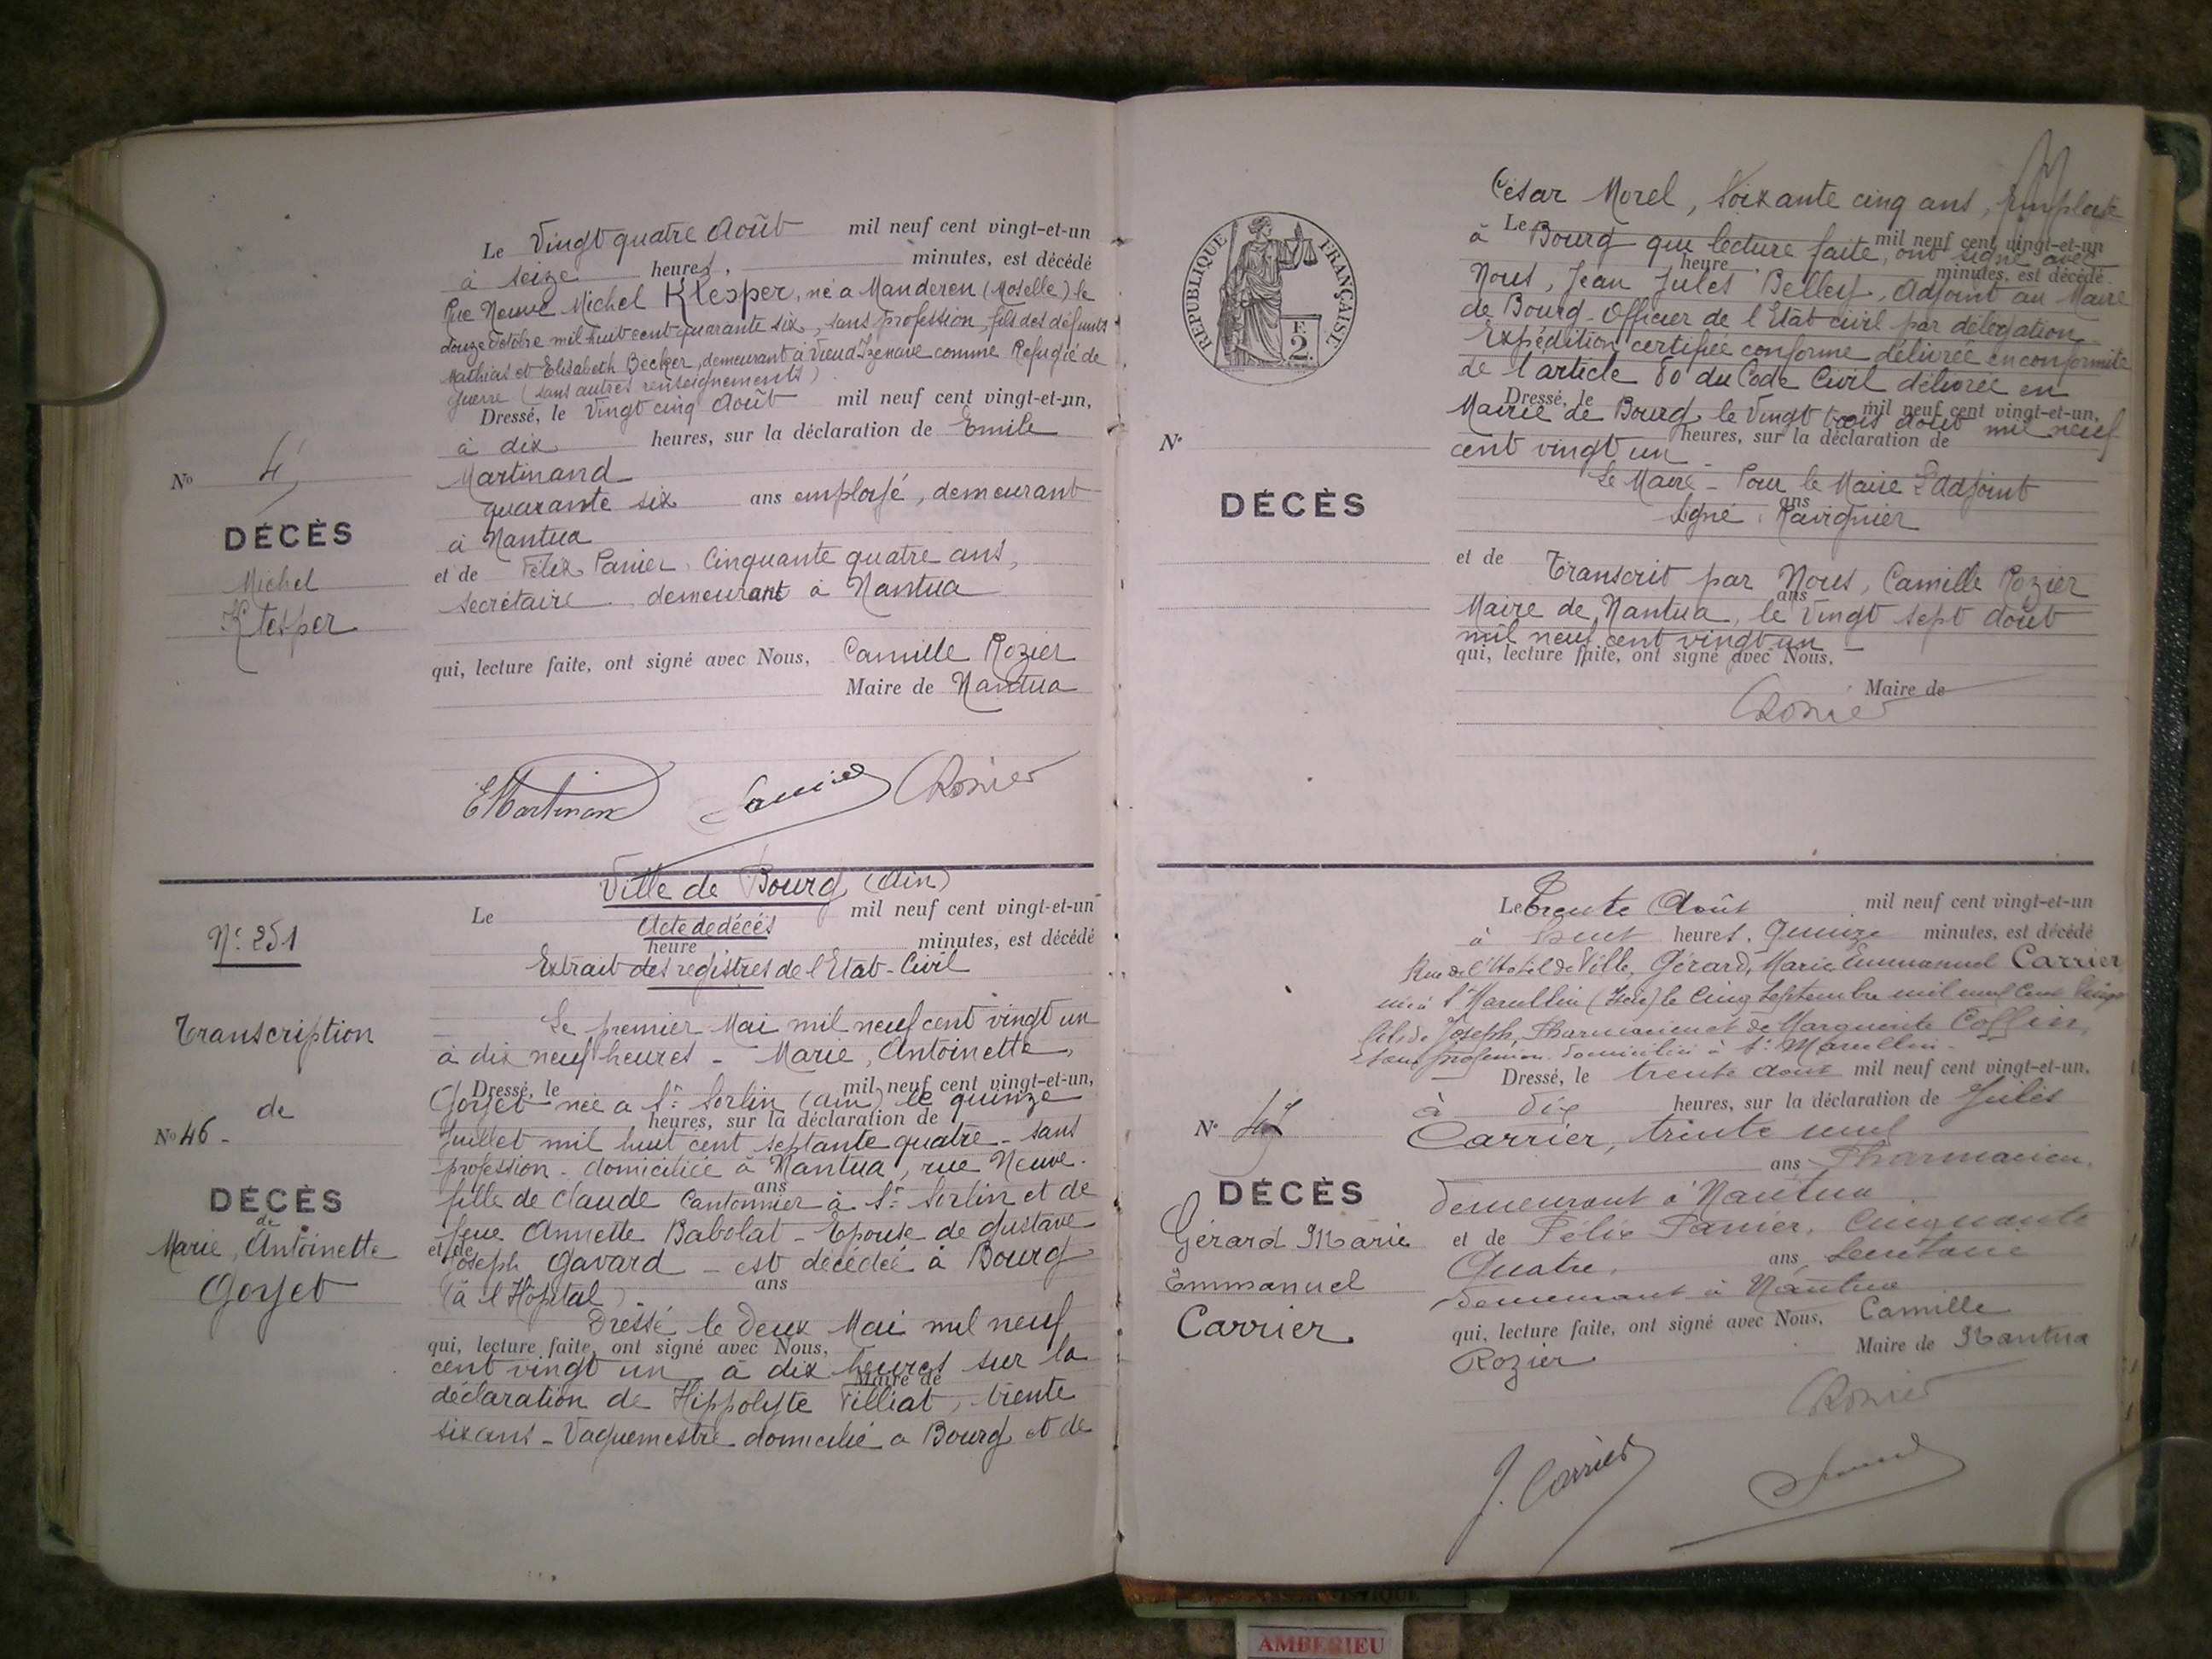 Le Vingt quatre Août mil neuf cent vingt-et-un
à seize heures, minutes, est décédé
Rue Neuve Michel Klesper, né a Manderen (Moselle) le
douze Octobre mil huit cent quarante six, sans profession, fils des défunts
Mathias et Elisabeth Becker, demeurant à Vieu d'Izenave comme Refugié de
guerre (sans autres renseignements)
Dressé, le Vingt cinq Août mil neuf cent vingt-et-un,
à dix heures, sur la déclaration de Emile
Martinand
quarante six ans employé, demeurant
à Nantua
et de Félix Panier, Cinquante quatre ans,
secrétaire demeurant à Nantua
qui, lecture faite, ont signé avec Nous, Camille Rozier
Maire de Nantua
No
DÉCÈS
Michel
Klesper
E Martinand Panier CRozier
Ville de Bourg (Ain)
Le mil neuf cent vingt-et-un
Acte de décès
heure minutes, est décédé
Extrait des registres de l'Etat-Civil
Le premier Mai mil neuf cent vingt un
à dix neuf heures - Marie, Antoinette,
Dressé, le mil neuf cent vingt-et-un,
Goyet née a St Sorlin (ain) le quinze
heures, sur la déclaration de
Juillet mil huit cent septante quatre - sans
profession - domiciliée à Nantua, rue Neuve.
ans
fille de Claude Cantonnier à St Sorlin et de
feue Annette Babolat - Epouse de Gustave
et de
Joseph Gavard - est décédée à Bourg
ans
(à l'Hôpital).
Dressé le Deux Mai mil neuf
qui, lecture faite, ont signé avec Nous,
cent vingt un à dix heures sur la
Maire de
déclaration de Hippolyte Villiat, trente
six ans - Vaguemestre domicilié a Bourg et de
No 251
Transcription
de
No 46 -
DÉCÈS
de
Marie, Antoinette
Goyet
RÉPUBLIQUE FRANÇAISE
F.
2.
César Morel, Soixante cinq ans, Employé
Le mil neuf cent vingt-et-un
à Bourg que lecture faite, ont signé avec
heure minutes, est décédé
Nous, Jean Jules Belley, Adjoint au Maire
de Bourg - Officier de l'Etat civil par délégation
Expédition certifiée conforme délivrée en conformité
de l'article 80 du Code Civil délivrée en
Dressé, le mil neuf cent vingt-et-un,
Mairie de Bourg le Vingt trois Août mil neuf
heures, sur la déclaration de
cent vingt un
Le Maire - Pour le Maire L'adjoint
ans
signé: Ravignier
et de Transcrit par Nous, Camille Rozier
ans
Maire de Nantua, le Vingt sept Août
mil neuf cent vingt un -
qui, lecture faite, ont signé avec Nous,
Maire de
CRozier
No
DÉCÈS
Le Trente Août mil neuf cent vingt-et-un
à heures, Quinze minutes, est décédé
Rue de l'Hotel de Ville, Gérard, Marie, Emmanuel Carrier
né à St Marcellin (Isère) le Cinq Septembre mil neuf cent Vingt
fils de Joseph, Pharmacien et de Marguerite Collin,
sans profession domiciliés à St Marcellin -
Dressé, le trente Août mil neuf cent vingt-et-un,
à dix heures, sur la déclaration de Jules
Carrier, trente neuf
ans Pharmacien,
demeurant à Nantua
et de Félix Panier, Cinquante
Quatre, ans, Secrétaire
demeurant à Nantua
qui, lecture faite, ont signé avec Nous, Camille
Rozier Maire de Nantua
CRozier
J. Carrier Panier
No 47
DÉCÈS
Gérard Marie
Emmanuel
Carrier
AMBERIEU